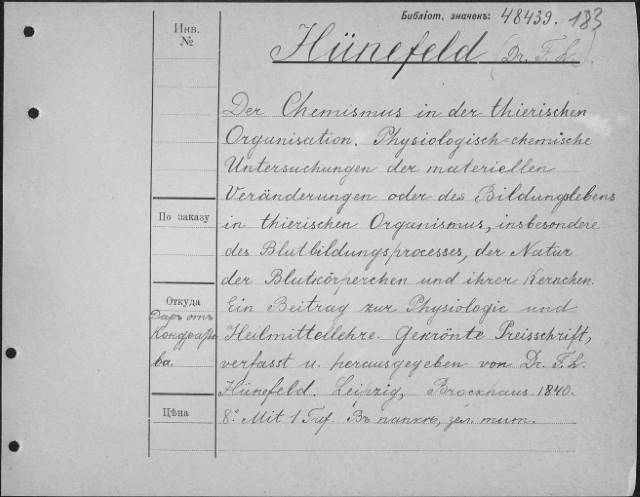 Библіот. значекъ: 48439. 183
Инв.
№
Hünefeld (Dr. F. L.).
Der Chemismus in der thierischen
Organisation. Physiologisch-chemische
Untersuchungen der materiellen
Veränderungen oder des Bildungslebens
in thierischen Organismus, insbesondere
des Blutbildungsprocesses, der Natur
der Blutkörperchen und ihrer Kernchen.
Ein Beitrag zur Physiologie und
Heilmittellehre. Gekrönte Preisschrift,
verfasst u. herausgegeben von Dr. F. L.
Hünefeld. Leipzig, Brockhaus 1840.
8.° Mit 1 Taf. Въ папкѣ, зел. тит.
По заказу
Откуда
Даръ отъ
Кондрать
ва.
Цѣна